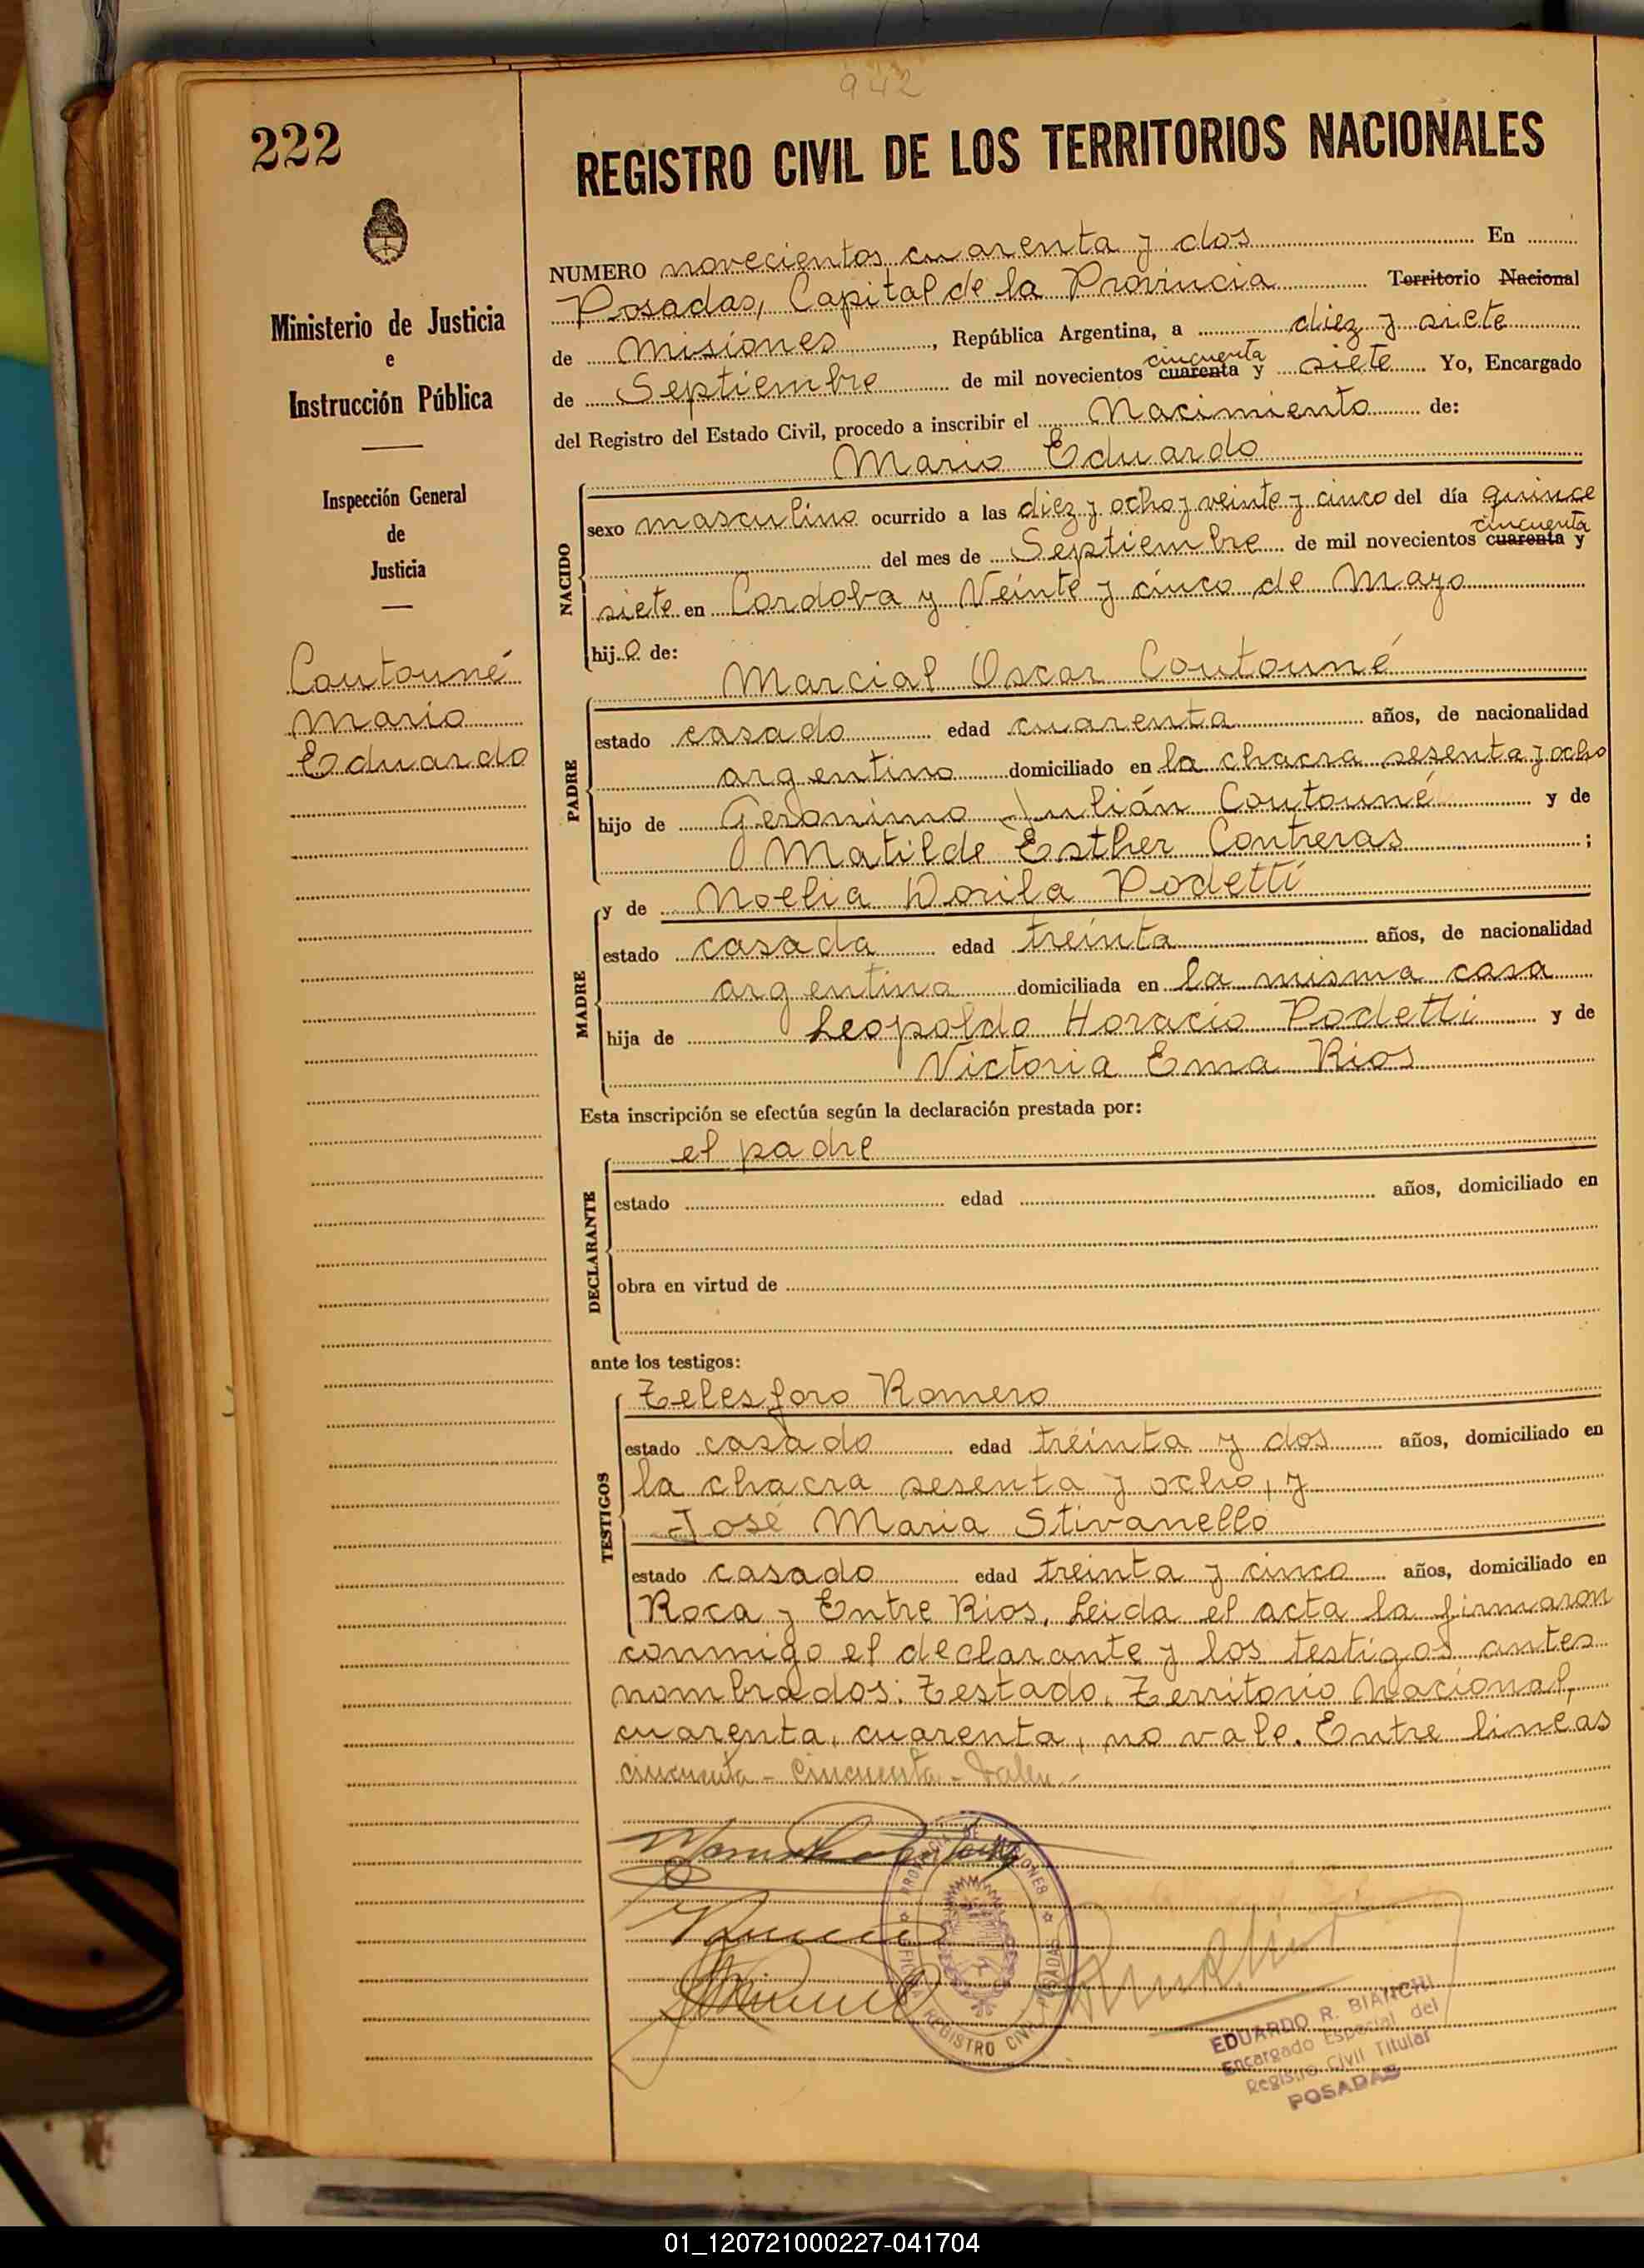 942
222
REGISTRO CIVIL DE LOS TERRITORIOS NACIONALES
Ministerio de Justicia
e
Instrucción Pública
Inspección General
de
Justicia
Coutouné
Mario
Eduardo
NUMERO novecientos cuarenta y dos En
Posadas, Capital de la Provincia Territorio Nacional
de Misiones, República Argentina, a diez y siete
cincuenta
de Septiembre de mil novecientos cuarenta y siete Yo, Encargado
del Registro del Estado Civil, procedo a inscribir el Nacimiento de:
Mario Eduardo
NACIDO
sexo masculino ocurrido a las diez y ocho y veinte y cinco del día quince
cincuenta
del mes de Septiembre de mil novecientos cuarenta y
siete en Cordoba y Veinte y cinco de Mayo
hijo de:
Marcial Oscar Coutouné
PADRE
estado casado edad cuarenta años, de nacionalidad
argentino domiciliado en la chacra sesenta y ocho
hijo de Geronimo Julián Coutouné y de
Matilde Esther Contreras;
MADRE
y de Noelia Dorila Podetti
estado casada edad treinta años, de nacionalidad
argentina domiciliada en la misma casa
hija de Leopoldo Horacio Podetti y de
Victoria Ema Rios
Esta inscripción se efectúa según la declaración prestada por:
el padre
DECLARANTE
estado edad años, domiciliado en
obra en virtud de
ante los testigos:
TESTIGOS
Telesforo Romero
estado casado edad treinta y dos años, domiciliado en
la chacra sesenta y ocho, y
José Maria Stivanello
estado casado edad treinta y cinco años, domiciliado en
Roca y Entre Rios. Leida el acta la firmaron
conmigo el declarante y los testigos antes
nombrados: Testado. Territorio Nacional,
cuarenta, cuarenta, no vale. Entre lineas
cincuenta - cincuenta - Valen -
PROVINCIA DE MISIONES
OFICINA REGISTRO CIVIL POSADAS
EDUARDO R. BIANCHI
Encargado Especial del
Registro Civil Titular
POSADAS
01_120721000227-041704